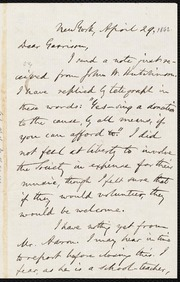 New York, April 29, 1862
Dear Garrison,
I find a note, just re-
ceived from John W. Hutchinson.
I have replied by telegraph in
these words: "Yes—as a donation
to the cause, by all means, if
you can afford to." I did
not feel at liberty to involve
the Society in expense for their
music, though I felt sure that
if they would volunteer, they
would be welcome.
I have nothing yet from
Mr. Heron. I may hear in time
to report before closing this. I
fear, as he is a school-teacher,